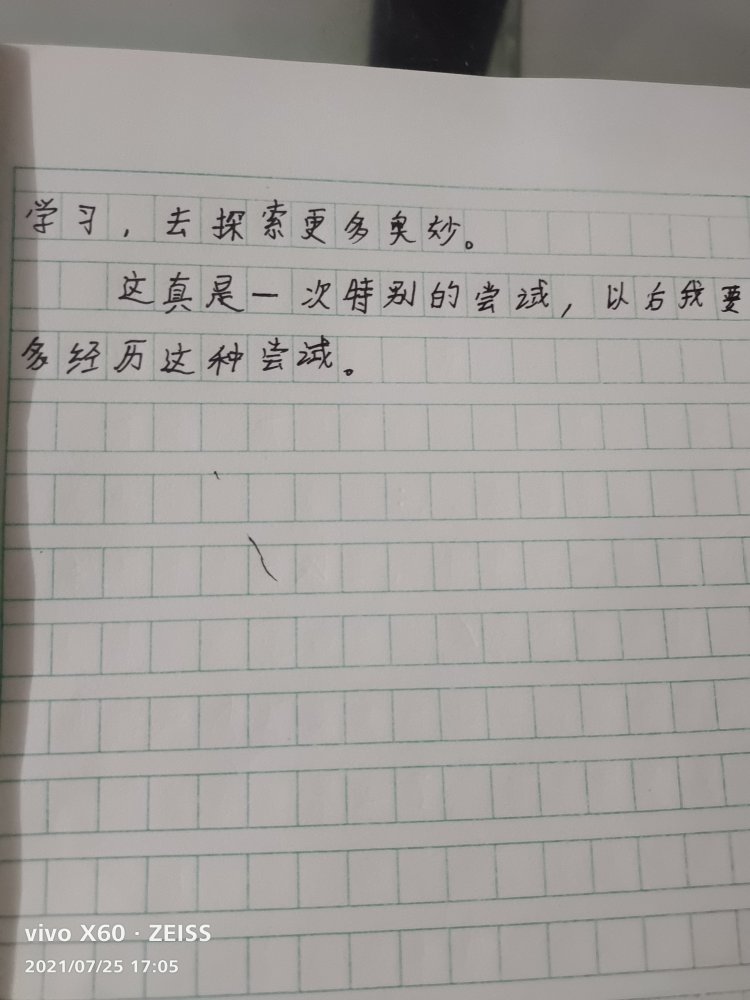 学习，去探索更多奥妙。
这真是一次特别的尝试，以后我要
多经历这种尝试。
vivo X60 · ZEISS
2021/07/25 17:05